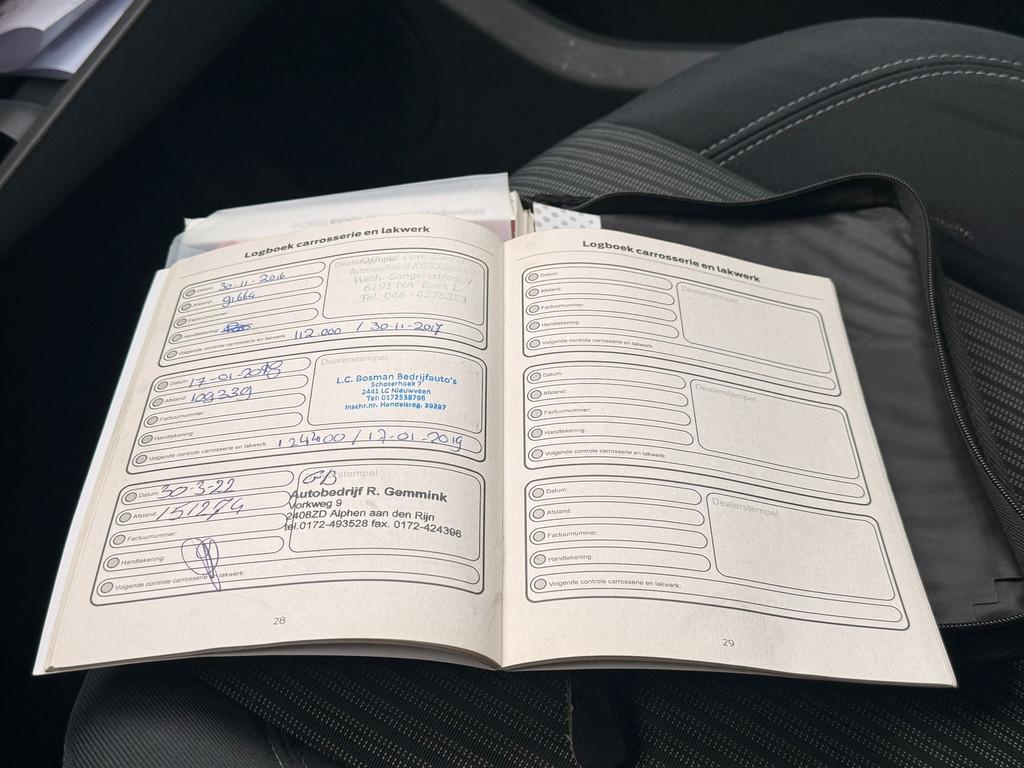 Logboek carrosserie en lakwerk
Datum: 30-11-2016
Afstand: 91664
Factuurnummer:
Handtekening:
Volgende controle carrosserie en lakwerk: 112.000 / 30-11-2017
Dealerstempel
Weth. Sangersstraat 7
6191 NA Beek L.
Tel. 046 - 4378253
Datum: 17-01-2018
Afstand: 109339
Factuurnummer:
Handtekening:
Volgende controle carrosserie en lakwerk: 124400 / 17-01-2019
Dealerstempel
L.C. Bosman Bedrijfauto's
Schoterhoek 7
2441 LC Nieuwveen
Tel: 0172538796
Inschr.nr. Handelsreg. 29287
Datum: 30-3-22
Afstand: 151274
Factuurnummer:
Handtekening:
Volgende controle carrosserie en lakwerk:
Dealerstempel
Autobedrijf R. Gemmink
Vorkweg 9
2408ZD Alphen aan den Rijn
tel.0172-493528 fax. 0172-424398
28
Logboek carrosserie en lakwerk
Datum:
Afstand:
Factuurnummer:
Handtekening:
Volgende controle carrosserie en lakwerk:
Dealerstempel
Datum:
Afstand:
Factuurnummer:
Handtekening:
Volgende controle carrosserie en lakwerk:
Dealerstempel
Datum:
Afstand:
Factuurnummer:
Handtekening:
Volgende controle carrosserie en lakwerk:
Dealerstempel
29